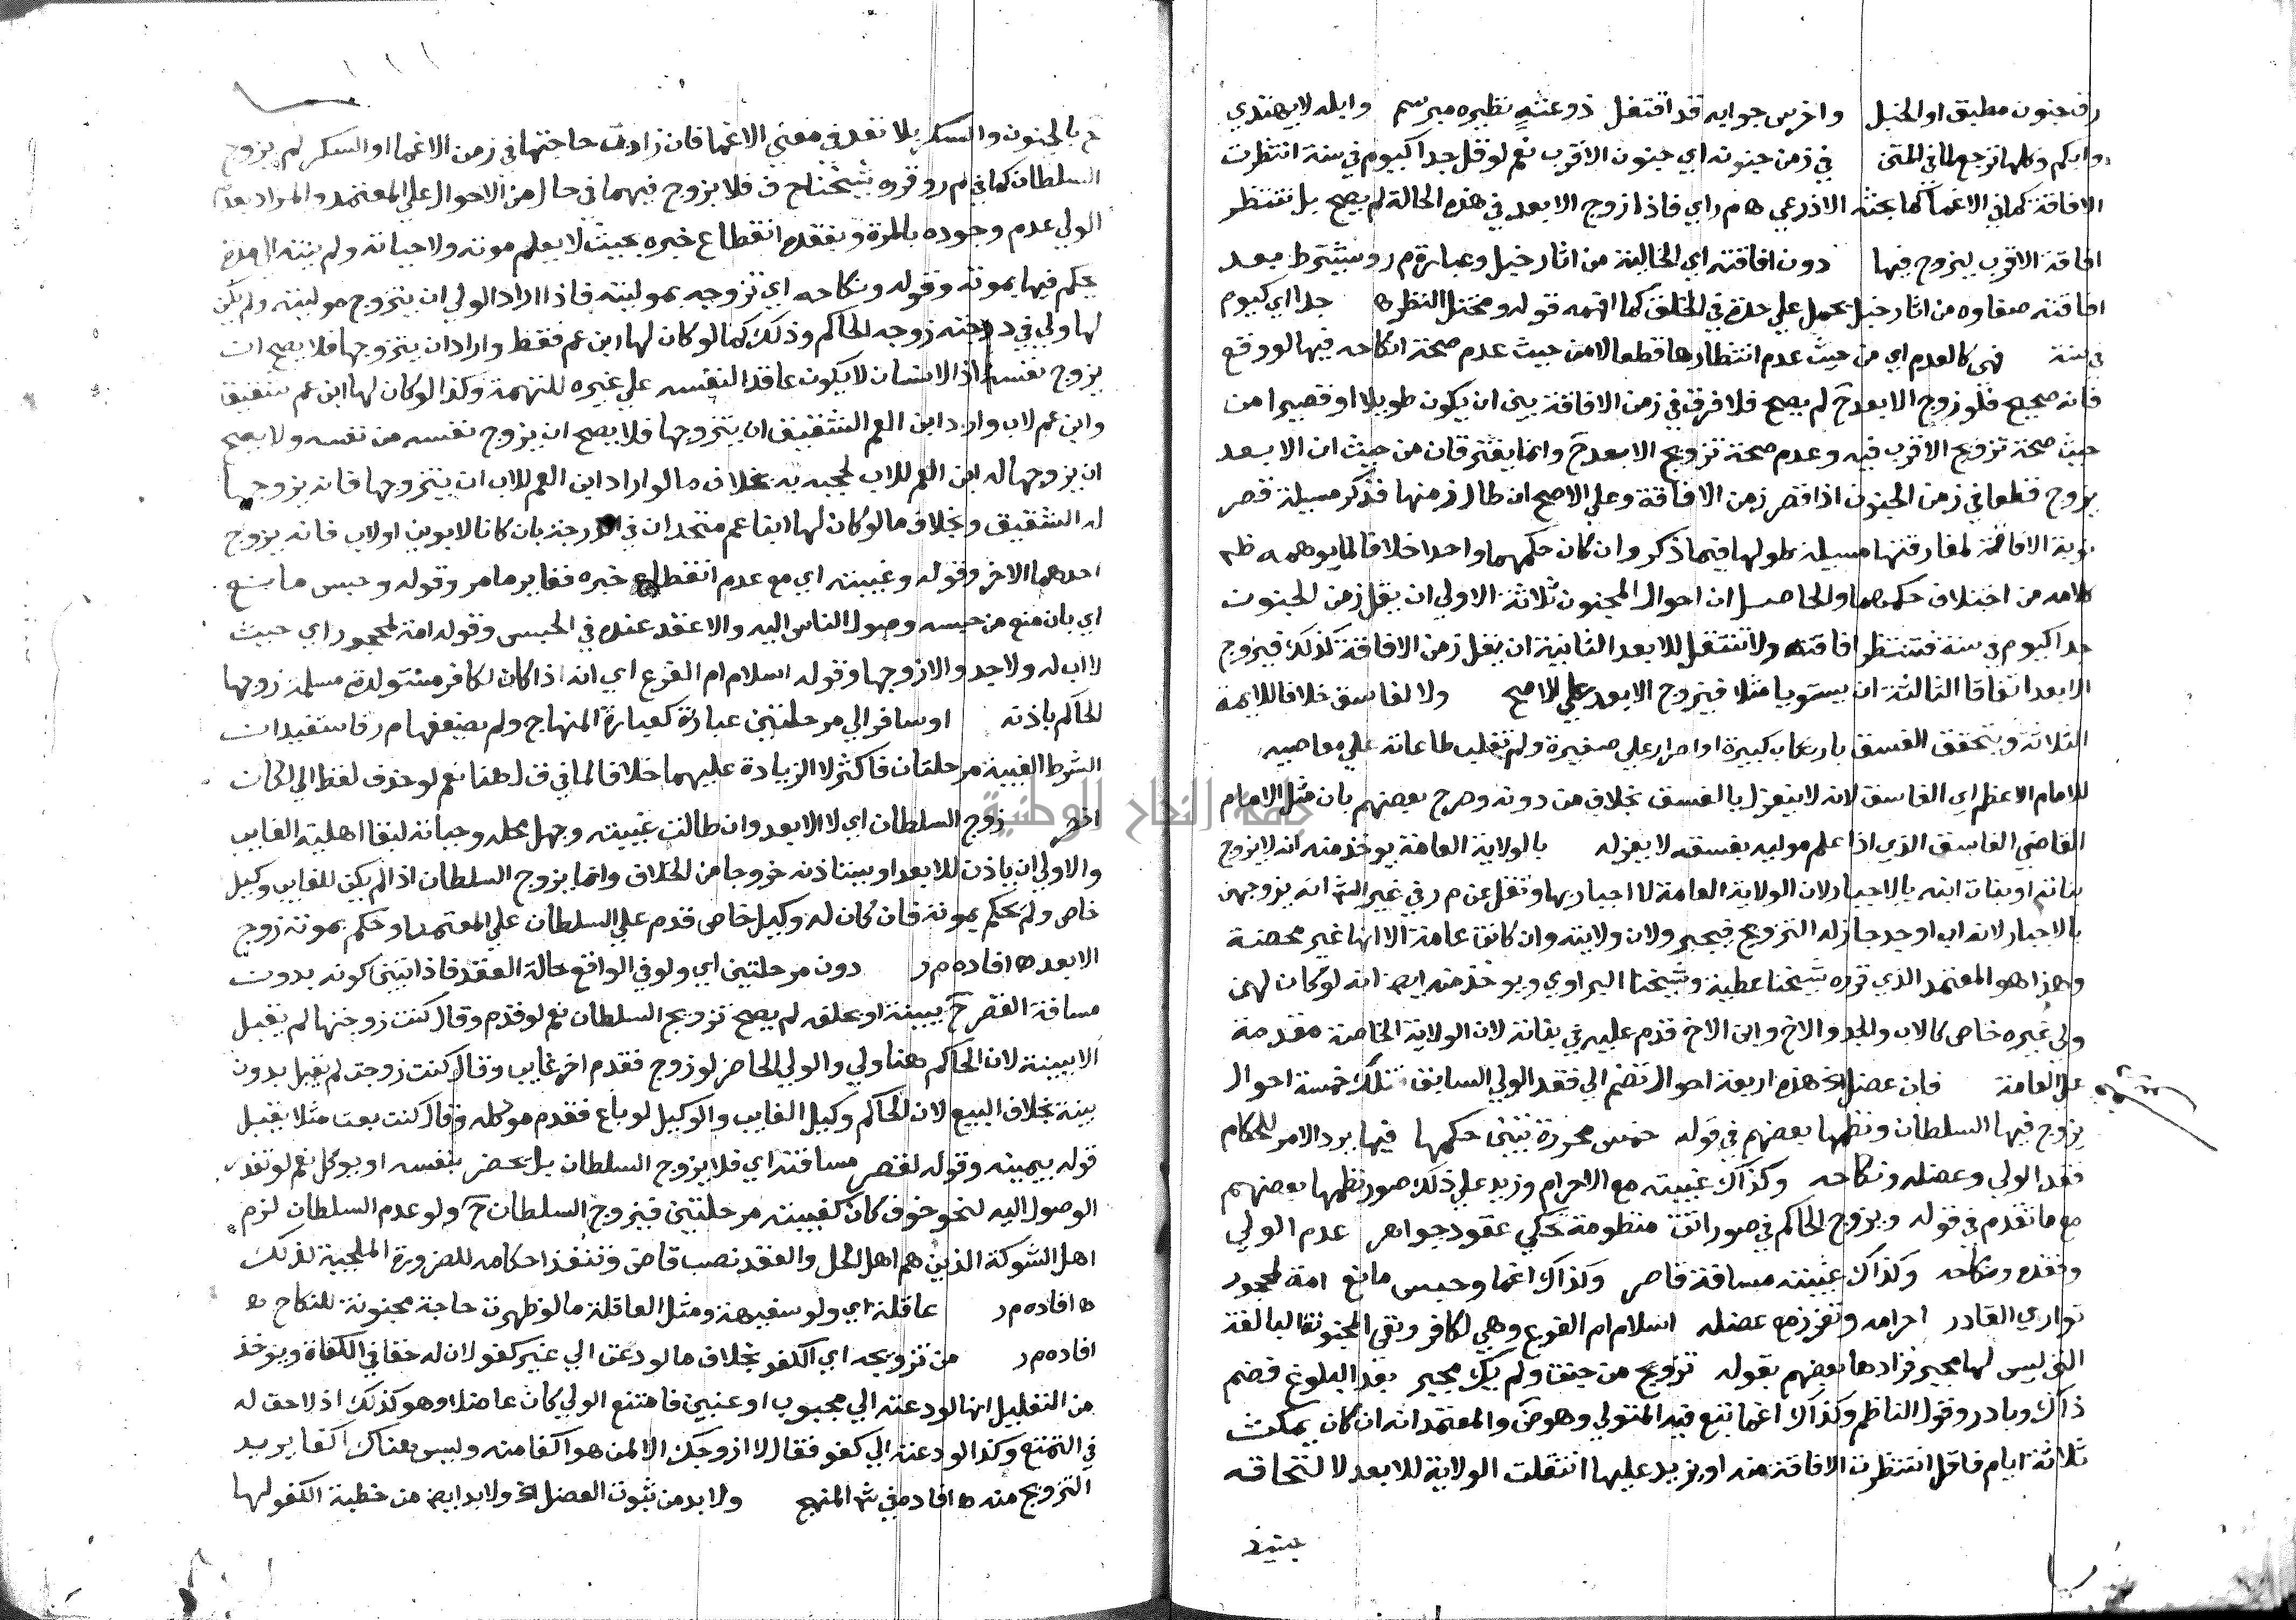 رق جنون مطبق او الخبل واخرس جوابه قد اقتفل ذو عنته نظيره مبرسم وابله لا يهتدي
وابكم وكلها ترجع لما في المتن في زمن جنونه اي جنون الاقرب نعم لو قل جدا كيوم في سنة انتظرت
الافاقة كما في الاغما كما بحثه الاذرعي ه م ر اي فاذا زوج الابعد في هذه الحالة لم يصح بل تنتظر
افاقة الاقرب ليزوج فيها دون افاقته اي الخالية من اثار خبل وعبارة م ر ويشترط بعد
افاقته صفاوه من اثار خبل يحمل على حدة في الخلق كما افهمه قوله ومختل النظر ه جدا اي كيوم
في سنة فهي كالعدم اي من حيث عدم انتظارها قطعا لا من حيث عدم صحة انكاحه فيها لو وقع
فانه صحيح فلو زوج الابعد ح لم يصح فلا فرق في زمن الافاقة بين ان يكون طويلا او قصيرا من
حيث صحة تزويج الاقرب فيه وعدم صحة تزويج الابعد ح وانما يفترقان من حيث ان الابعد
يزوج قطعا في زمن الجنون اذا قصر زمن الافاقة وعلى الاصح ان طال زمنها فذكر مسيلة قصر
نوبة الافاقة لمفارقتها مسيلة طولها فيما ذكر وان كان حكمهما واحدا خلافا لما يوهمه ظاهر
كلامه من اختلاف حكمهما والحاصل ان احوال المجنون ثلاثة الاولى ان يقل زمن الجنون
جدا كيوم في سنة فتنتظر افاقته ولا تنتقل للابعد الثانية ان يقل زمن الافاقة كذلك فيزوج
الابعد اتفاقا الثالثة ان يستويا مثلا فيزوج الابعد على الاصح ولا لفاسق خلافا للايمة
الثلاثة ويتحقق الفسق بارتكاب كبيرة او اصرار على صغيرة ولم تغلب طاعاته على معاصيه
للامام الاعظم اي الفاسق لانه لا ينعزل بالفسق بخلاف من دونه وصرح بعضهم بان مثل الامام
القاضي الفاسق الذي اذا علم موليه بفسقه لا يعزله بالولاية العامة يوخذ منه انه لا يزوج
بناته او بنات ابنه بالاجبار لان الولاية العامة لا اجبار بها ونقل عن م ر في غير الشرح انه يزوجهن
بالاجبار لانه اب او جد جاز له التزويج فيجبر ولان ولايته وان كانت عامة الا انها غير محضة
وهذا هو المعتمد الذي قرره شيخنا عطية وشيخنا البراوي ويوخذ منه ايضا انه لو كان لهن
ولي غيره خاص كالاب والجد والاخ وابن الاخ قدم عليه في بقائه لان الولاية الخاصة مقدمة
على العامة فان عضل الخ هذه اربعة احوال تضم الى فقد الولي السابق فتلك خمسة احوال
يزوج فيها السلطان ونظمها بعضهم في قوله خمس محررة تبين حكمها فيها يرد الامر للحكام
فقد الولي وعضله ونكاحه وكذاك غيبته مع الاحرام وزيد على ذلك صور نظمها بعضهم
مع ما تقدم في قوله ويزوج الحاكم في صور اتت منظومة تحكي عقود جواهر عدم الولي
وفقده ونكاحه وكذاك غيبته مسافة قاصر وكذاك اغما وحبس مانع امة لمحجور
تواري القادر احرامه وتعزز مع عضله اسلام ام الفرع وهي لكافر وبقي المجنونة البالغة
التي ليس لها مجبر فزادها بعضهم بقوله تزويج من جنت ولم يك مجبر بعد البلوغ فضم
ذاك وبادر وقول الناظم وكذاك اغما تبع فيه المتولي وهو ض والمعتمد انه ان كان يمكث
ثلاثة ايام فاقل انتظرت الافاقة منه او يزيد عليها انتقلت الولاية للابعد لالتحاقه
ح بالجنون والسكر بلا تعد في معنى الاغما فان زادت حاجتها في زمن الاغما او السكر لم يزوج
السلطان كما في م ر وقرره شيخنا ح ف فلا يزوج فيهما في حال من الاحوال على المعتمد والمراد بعدم
الولي عدم وجوده بالمرة وبفقده انقطاع خبره بحيث لا يعلم موته ولا حياته ولم ينته الى مدة
يحكم فيها بموته وقوله ونكاحه اي تزوجه بموليته فاذا اراد الولي ان يتزوج موليته ولم يكن
لها ولي في درجته زوجه الحاكم وذلك كما لو كان لها ابن عم فقط واراد ان يتزوجها فلا يصح ان
يزوج نفسه اذ الانسان لا يكون عاقدا لنفسه على غيره للتهمة وكذا لو كان لها ابن عم شقيق
وابن عم لاب واراد ابن العم الشقيق ان يتزوجها فلا يصح ان يزوج نفسه من نفسه ولا يصح
ان يزوجها له ابن العم للاب لحجبه به بخلاف ما لو اراد ابن العم للاب ان يتزوجها فانه يزوجها
له الشقيق وبخلاف ما لو كان لها ابنا عم متحدان في الدرجة بان كانا لابوين او لاب فانه يزوج
احدهما الاخر وقوله وغيبته اي مع عدم انقطاع خبره فغاير ما مر وقوله وحبس مانع
اي بان منع من حبسه وصول الناس اليه والا عقد عنده في الحبس وقوله امة لمحجور اي حيث
لا اب له ولا جد والا زوجها وقوله اسلام ام الفرع اي انه اذا كان لكافر مستولدة مسلمة زوجها
الحاكم باذنه او سافر الى مرحلتين عبارة كعبارة المنهاج ولم يضعفها م ر فاستفيد ان
الشرط الغيبة مرحلتان فاكثر لا الزيادة عليهما خلافا لما في ق ل هنا نعم لو حذف لفظ الى لكان
اخصر زوج السلطان اي لا الابعد وان طالت غيبته وجهل محله وحياته لبقا اهلية الغايب
والاولى ان ياذن للابعد او يستاذنه خروجا من الخلاف وانما يزوج السلطان اذا لم يكن للغايب وكيل
خاص ولم يحكم بموته فان كان له وكيل خاص قدم على السلطان على المعتمد او حكم بموته زوج
الابعد ه افاده م ر دون مرحلتين اي ولو في الواقع حالة العقد فاذا تبين كونه بدون
مسافة القصر ح ببينة او بحلفه لم يصح تزويج السلطان نعم لو قدم وقال كنت زوجتها لم يقبل
الا ببينة لان الحاكم هنا ولي والولي الحاضر لو زوج فقدم اخر غايب وقال كنت زوجت لم يقبل بدون
بينة بخلاف البيع لان الحاكم وكيل الغايب والوكيل لو باع فقدم موكله وقال كنت بعت مثلا يقبل
قوله بيمينه وقوله لقصر مسافته اي فلا يزوج السلطان بل يحضر بنفسه او يوكل نعم لو تعذر
الوصول اليه لنحو خوف كان كغيبته مرحلتين فيزوج السلطان ح ولو عدم السلطان لزم
اهل الشوكة الذين هم اهل الحل والعقد نصب قاض وتنفذ احكامه للضرورة الملجية لذلك
ه افاده م ر عاقلة اي ولو سفيهة ومثل العاقلة ما لو ظهرت حاجة مجنونة للنكاح ه
افاده م ر من تزويجه اي الكفو بخلاف ما لو دعت الى غير كفو لان له حقا في الكفاة ويوخذ
من التعليل انها لو دعته الى مجبوب او عنين فامتنع الولي كان عاضلا وهو كذلك اذ لا حق له
في التمتع وكذا لو دعته الى كفو فقال لا ازوجك الا لمن هو اكفا منه وليس هناك اكفا يريد
التزويج منه ه افاده في ش المنهج ولا بد من ثبوت العضل الخ ولا بد ايضا من خطبة الكفو لها